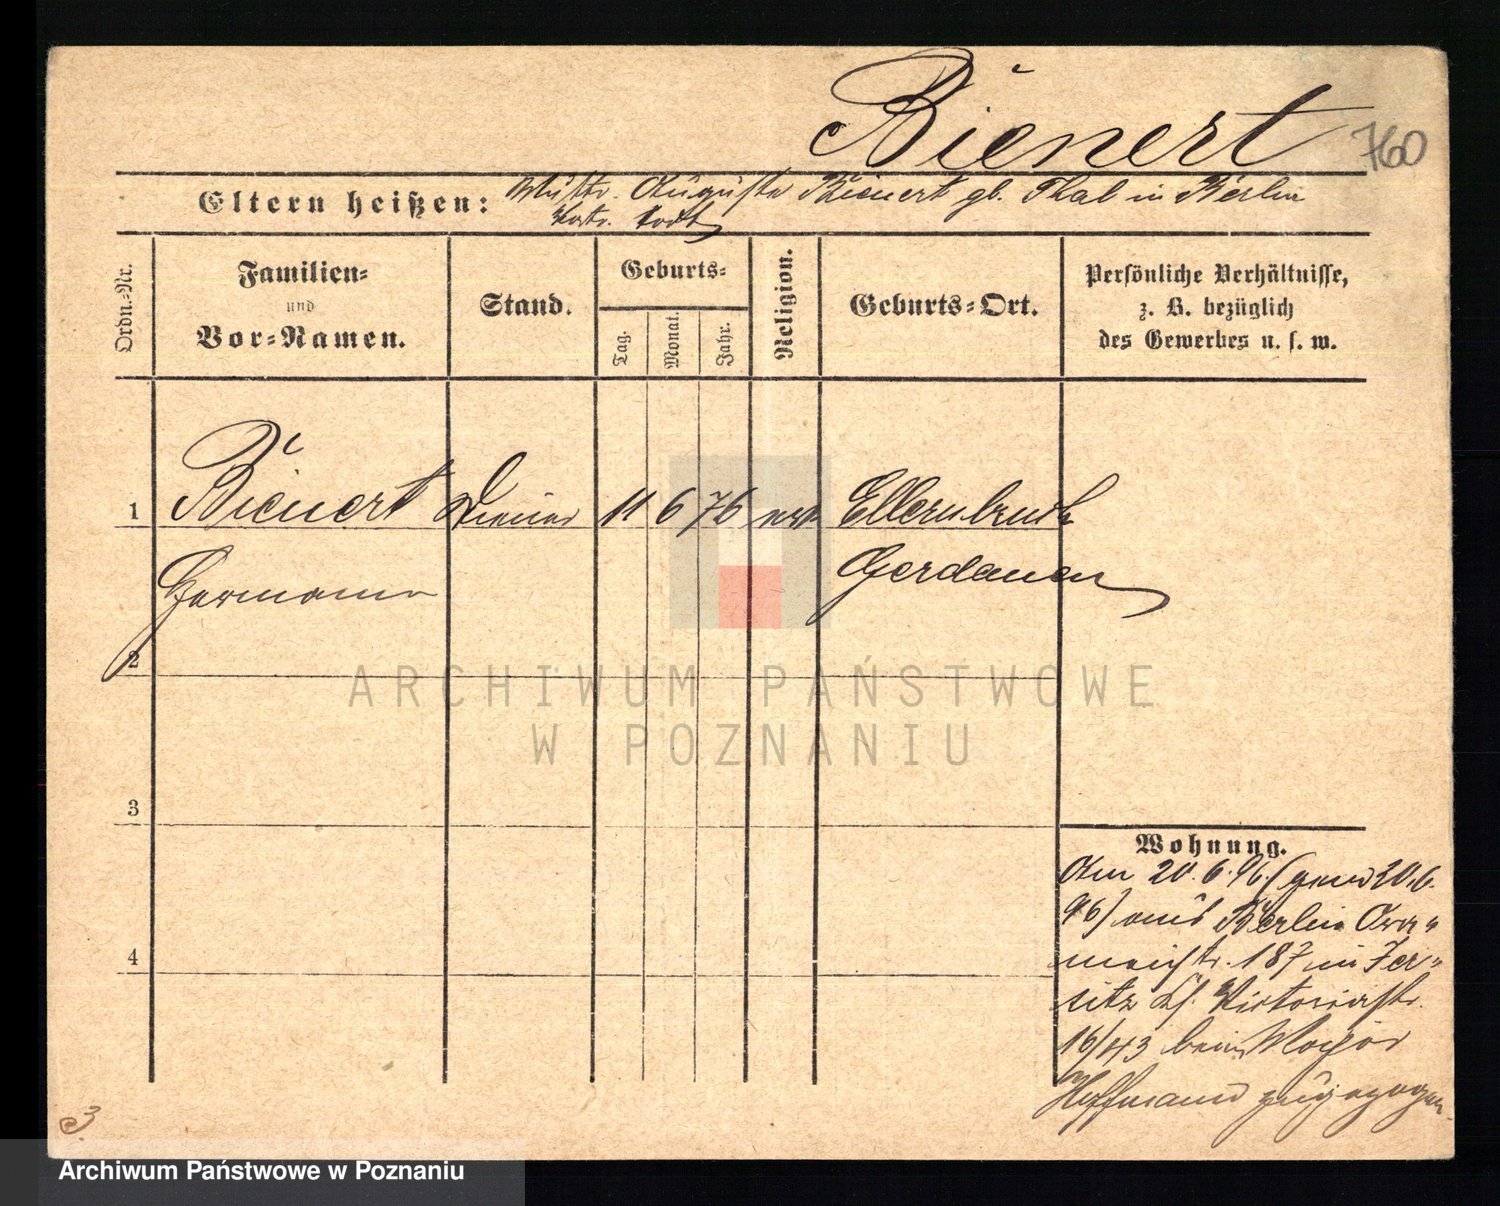 Bienert
760
Eltern heißen: Muttr. Auguste Bienert gb. Thal in Berlin
Vatr. todt
Ordn.-Nr.
Familien-
und
Vor-Namen.
Stand.
Geburts-
Tag.
Monat.
Jahr.
Religion.
Geburts-Ort.
Persönliche Verhältnisse,
z. B. bezüglich
des Gewerbes u. s. w.
1 Bienert Diener 11 6 76 Ellernbruch
Hermann Gerdauen
2
3
4
Wohnung.
Am 20.6.96. ( 20.6.
96) aus Berlin
187 in Jer-
sitz Victoriastr.
16/43 beim Major
Hoffmann zugezogen.
ARCHIWUM PAŃSTWOWE
W POZNANIU
Archiwum Państwowe w Poznaniu